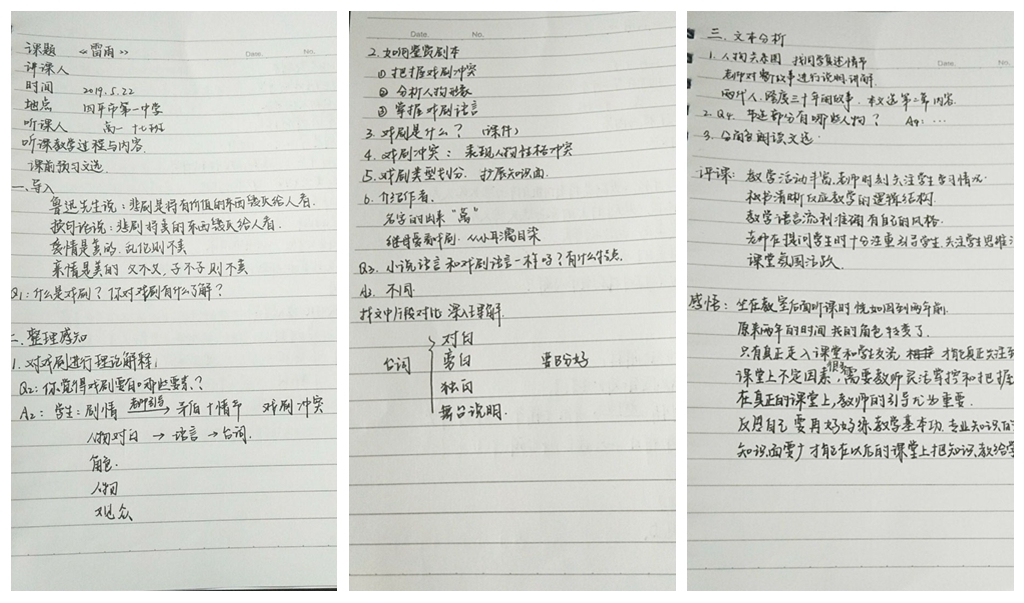 课题 《雷雨》
Date. No.
评课人
时间 2019.5.22
地点 四平市第一中学
听课人 高一十七班
听课教学过程与内容
课前预习文选
一、导入
鲁迅先生说：悲剧是将有价值的东西毁灭给人看.
换句话说：悲剧将美的东西毁灭给人看.
爱情是美的,乱伦则不美
亲情是美的 父不父,子不子则不美
Q1:什么是戏剧？你对戏剧有什么了解？
二、整理感知
1. 对戏剧进行理论解释：
Q2:你觉得戏剧要有哪些要素？
A2：学生：剧情 老师引导→ 矛盾+情节 戏剧冲突
人物对白 → 语言 → 台词.
角色.
人物
观众
Date. No.
2. 如何鉴赏剧本
①把握戏剧冲突
②分析人物形象
③掌握戏剧语言
3. 戏剧是什么？（课件）
4. 戏剧冲突：表现人物性格冲突
5. 戏剧类型划分. 扩展知识面.
6. 介绍作者.
名字的由来“萬”
继母爱看戏剧.从小耳濡目染
Q3. 小说语言和戏剧语言一样吗？有什么特点.
A3. 不同
找文中片段对比 深入理解.
台词 对白
旁白
独白
舞台说明.
要区分好
三、文本分析
Date. No.
1. 人物关系图 找同学复述情节
老师对整个故事进行说明讲解
两代人.跨度三十年的故事. 本文选第二幕内容.
2. Q4. 节选部分有哪些人物？ A4: …
3. 分角色朗读文选.
评课：教学活动丰富,老师时刻关注学生学习情况.
板书清晰反应教学的逻辑结构
教学语言流利准确 有自己的风格.
老师在提问学生时十分注重引导学生,关注学生思维
课堂氛围活跃.
感悟：坐在教室后面听课时 恍如回到两年前.
原来两年的时间 我的角色转变了.
只有真正走入课堂和学生交流 才能真正关注到
课堂上不定因素很多,需要教师灵活掌控和把握
在真正的课堂上,教师的引导尤为重要.
反思自己 要再好好练教学基本功,专业知识
知识面要广 才能在以后的课堂上把知识教给学